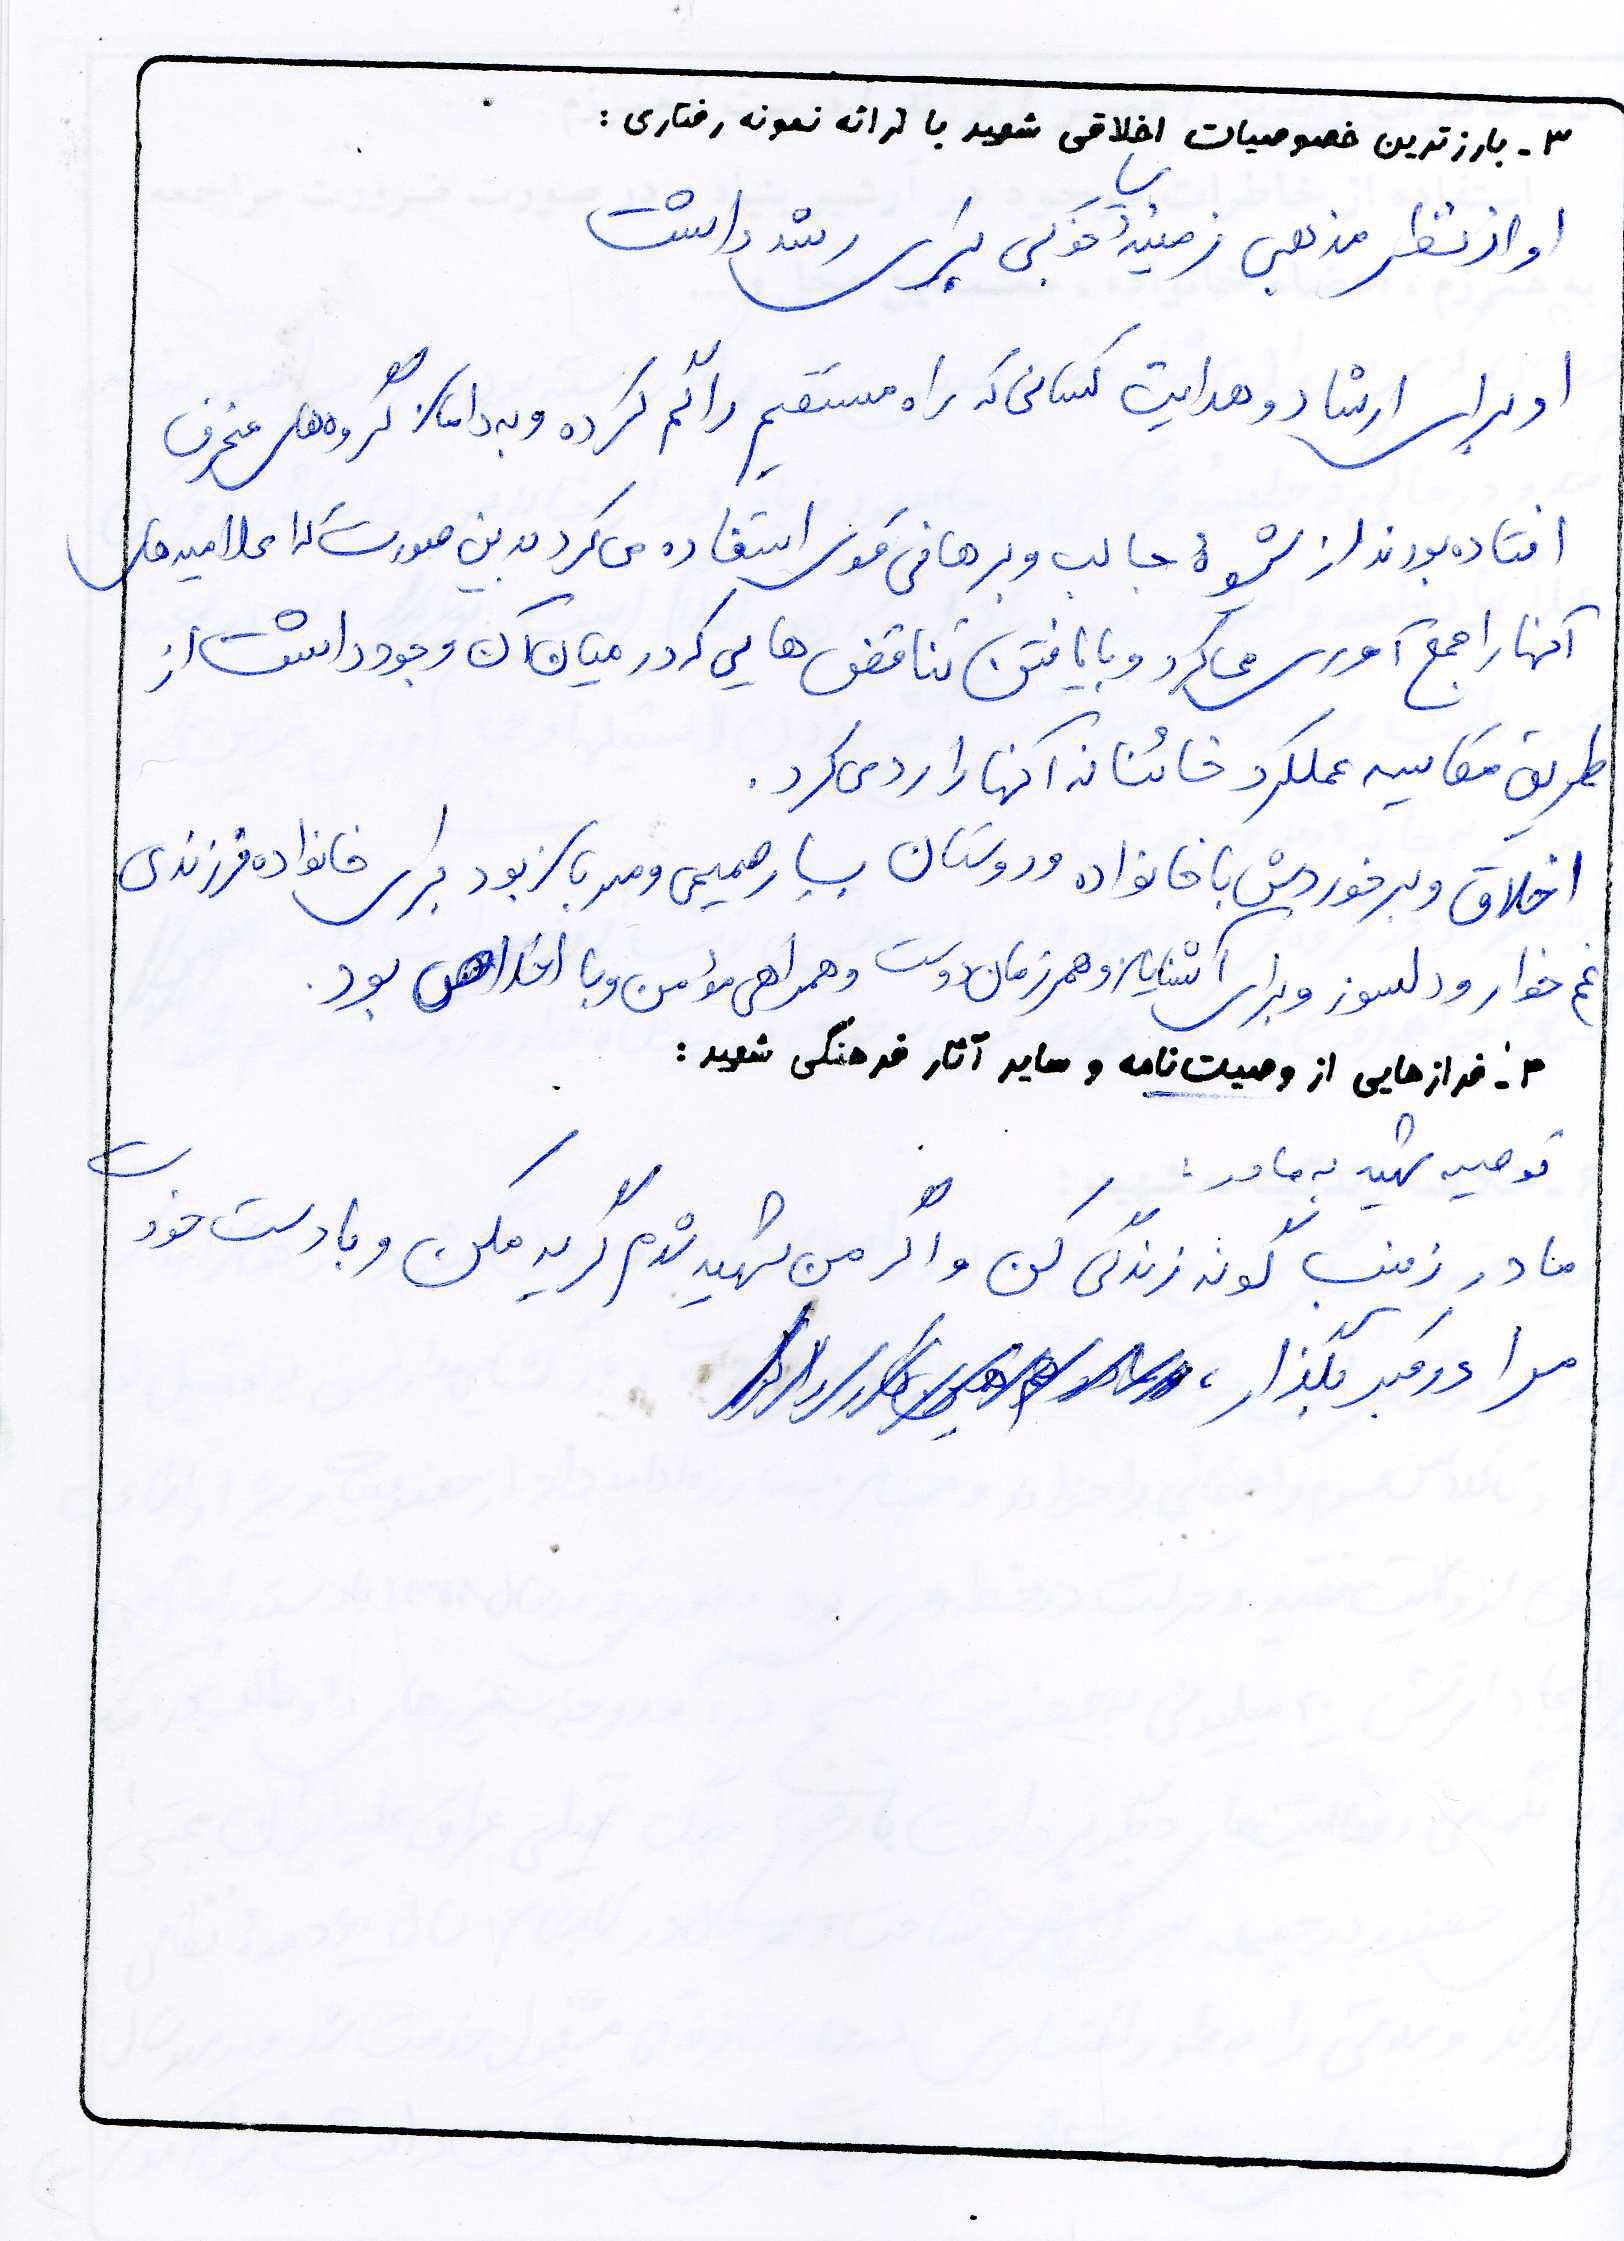 ۳ـ بارزترین خصوصیات اخلاقی شهید با ارائه نمونه رفتاری :
او از نظر مذهبی زمینهٔ خوبی برای رشد داشت
او برای ارشاد و هدایت کسانی که راه مستقیم را گم کرده و به دامان گروه‌های منحرف
افتاده بودند از شیوهٔ جالب و برهانی قوی استفاده می‌کرد بدین صورت که اعلامیه‌های
آنها را جمع آوری می‌کرد و با یافتن تناقض هایی که در میان آن وجود داشت از
طریق مقایسه عملکرد خائنانه آنها را رد می‌کرد .
اخلاق و برخوردش با خانواده و دوستان بسیار صمیمی و مهربان بود برای خانواده فرزندی
غم خوار و دلسوز و برای آشنایان و همرزمان دوست و همراهی مؤمن و با اخلاص بود .
۴ـ فرازهایی از وصیت‌نامه و سایر آثار فرهنگی شهید :
توصیه شهید به مادر :
مادر زینب گونه زندگی کن و اگر من شهید شدم گریه مکن و با دست خودت
مرا در قبر بگذار ،